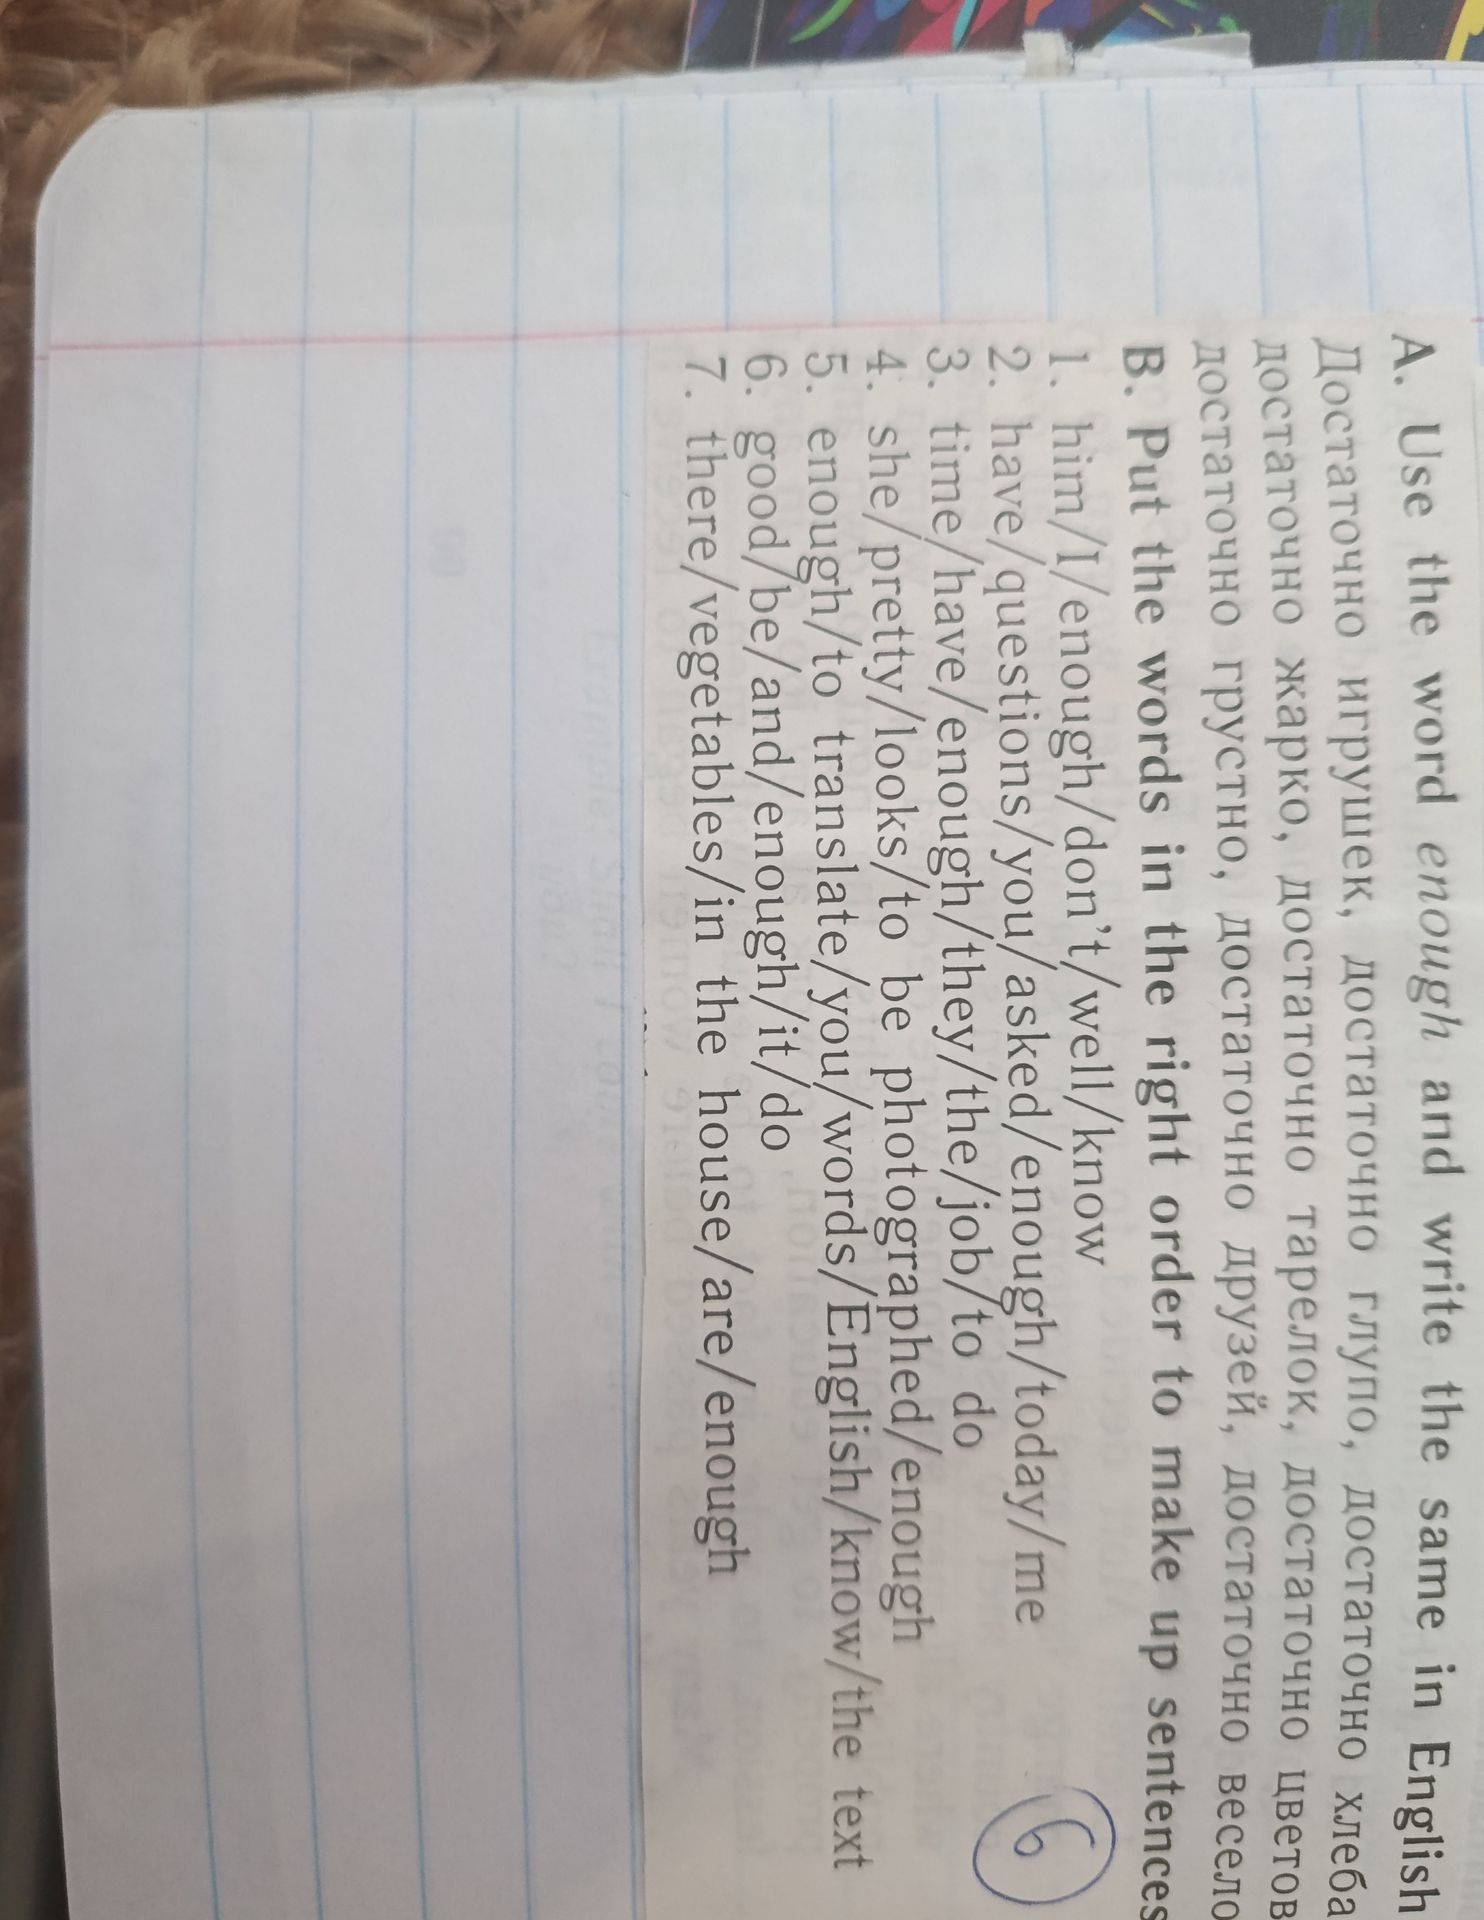 A. Use the word enough and write the same in English
Достаточно игрушек, достаточно глупо, достаточно хлеба
достаточно жарко, достаточно тарелок, достаточно цветов
достаточно грустно, достаточно друзей, достаточно весело
B. Put the words in the right order to make up sentences
1. him/I/enough/don't/well/know
2. have/questions/you/asked/enough/today/me
3. time/have/enough/they/the/job/to do
4. she/pretty/looks/to be photographed/enough
5. enough/to translate/you/words/English/know/the text
6. good/be/and/enough/it/do
7. there/vegetables/in the house/are/enough
6